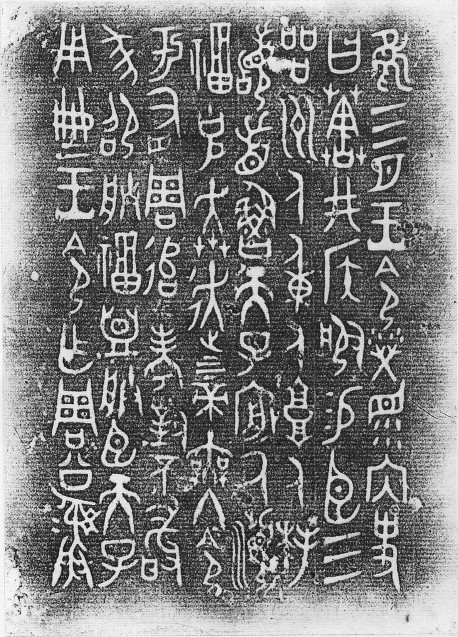 隹三月王令榮眔內史
曰䓊井侯服易臣三
品州人重人墉人拜
稽首魯天子造厥瀕
福克奔走上下帝無冬令
于有周追考對不敢
墜卲朕福盟朕臣天子
用典王令乍周公彝